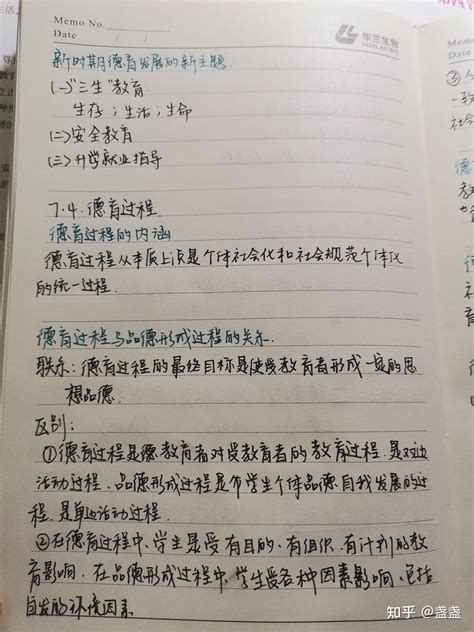 Memo No.
Date / /
华兰生物
HUALAN BIO
新时期德育发展的新主题.
(一)"三生"教育
生存;生活;生命
(二)安全教育
(三)升学就业指导
7.4.德育过程.
德育过程的内涵
德育过程从本质上说是个体社会化和社会规范个体化
的统一过程.
德育过程与品德形成过程的关系
联系:德育过程的最终目标是使受教育者形成一定的思
想品德.
区别:
①德育过程是德教育者对受教育者的教育过程.是双边
活动过程.品德形成过程是学生个体品德自我发展的过
程.是单边活动过程.
②在德育过程中、学生是受有目的、有组织、有计划的教
育影响.在品德形成过程中,学生受各种因素影响、包括
自发的环境因素
Mem
Date
③人
一致
社会
德
知乎 @盏盏